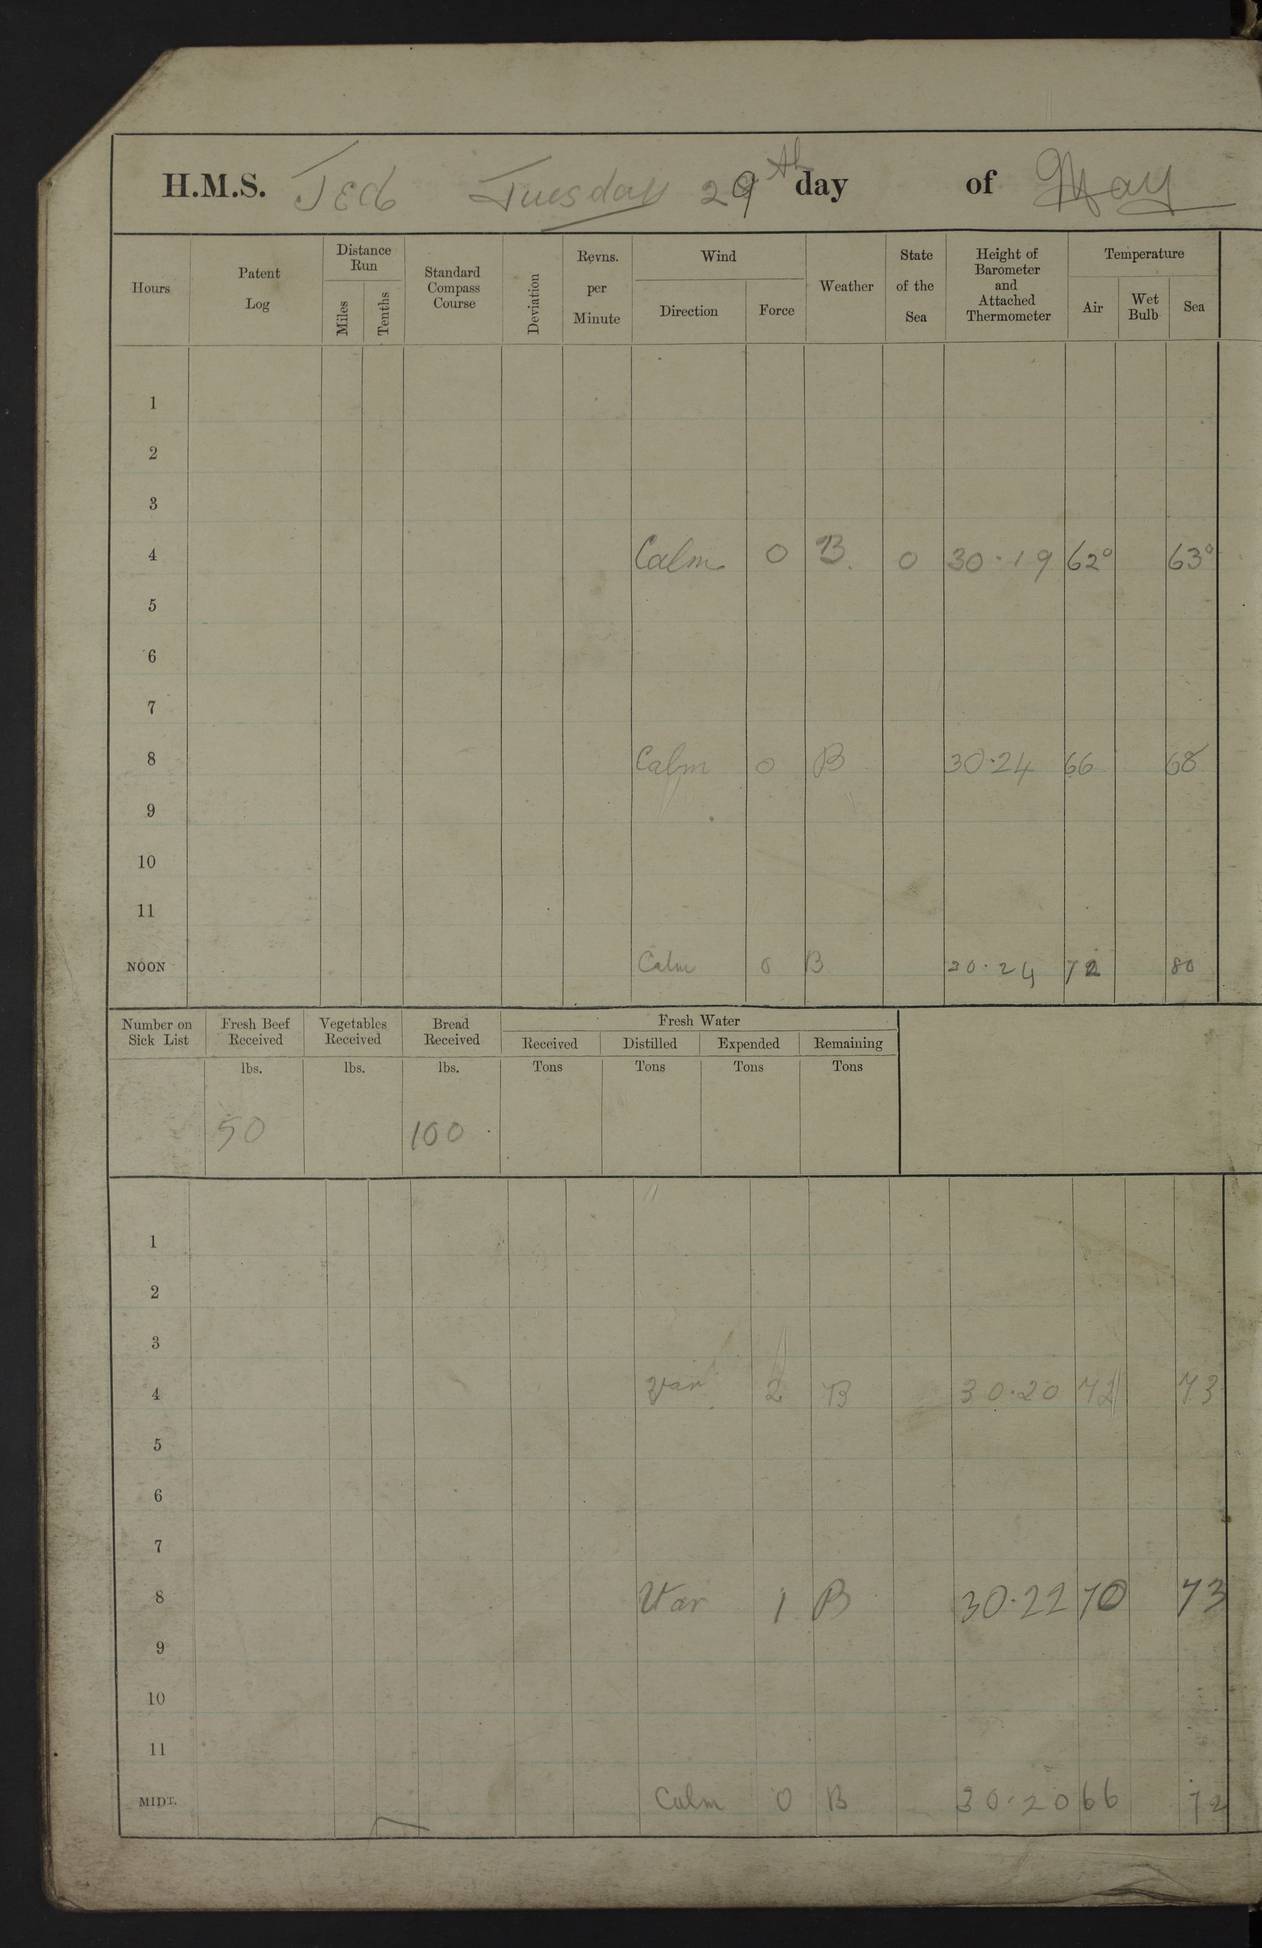 H.M.S. Jed Tuesday 29th day of May
Hours Patent Log Distance Run Miles Tenths Standard Compass Course Deviation Revns. per Minute Wind Direction Force Weather State of the Sea Height of Barometer and Attached Thermometer Temperature Air Wet Bulb Sea
1
2
3
4 Calm 0 B. 0 30.19 62° 63°
5
6
7
8 Calm 0 B 30.24 66 68
9
10
11
NOON Calm 0 B 30.24 72 80
Number on Sick List Fresh Beef Received Vegetables Received Bread Received Fresh Water
Received Distilled Expended Remaining
lbs. lbs. lbs. Tons Tons Tons Tons
50 100
1
2
3
4 Var 2 B 30.20 72 73
5
6
7
8 Var 1 B 30.22 70 73
9
10
11
MIDT. Calm 0 B 30.20 66 72